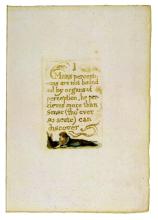 I
Mans percepti-
ons are not bound
ed by organs of
perception, he per-
cieves more than
sense (tho' ever
so acute) can
discover